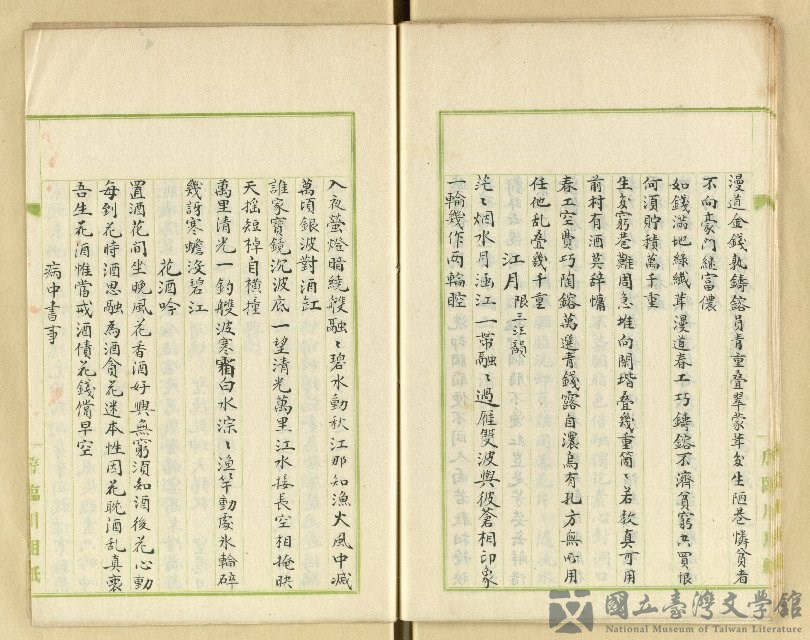 漫道金錢孰鑄鎔員青重叠翠蒙茸多生陋巷憐貧者
不向豪門縫富儂
如錢滿地綠纖茸漫道春工巧鑄鎔不濟貧窮共買恨
何須貯積萬千重
生多窮巷難周急堆向閑堦叠幾重箇〻若教真可用
前村有酒莫辭慵
春工空費巧陶鎔萬選青錢露自濃烏有孔方無所用
任他乱叠幾千重
江月 限三江韻
茫〻烟水月涵江一帶融〻過雁雙波與彼蒼相印象
一輪幾作兩輪腔
入夜螢燈暗繞艘融〻碧水動秋江那知漁火風中滅
萬頃銀波對酒缸
誰家寶鏡沉波底一望清光萬里江水接長空相掩映
天搖短棹自橫撞
萬里清光一釣艭波寒霜白水淙〻漁竿動處氷輪碎
幾訝寒蟾沒碧江
花酒吟
置酒花间坐晚風花香酒好興無窮須知酒後花心動
每到花時酒思融為酒貪花迷本性因花耽酒乱真衷
吾生花酒惟當戒酒債花錢償早空
病中書事
國立臺灣文學館
National Museum of Taiwan Literature